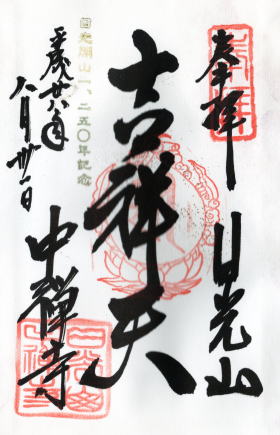 奉拝 日光山
吉祥天
日光開山一、二五〇年記念
中禅寺
平成廿八年
八月卅一日